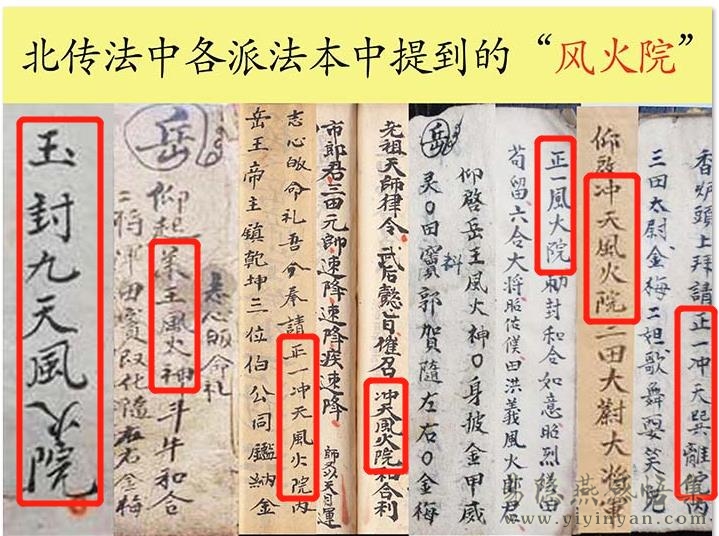 北传法中各派法本中提到的“风火院”
香炉頭上拜請正一冲天巽離院内
三田太尉金梅二妲歌舞耍笑児
仰啓冲天風火院二田大尉大将軍
正一風火院勅封和合如意昭烈
苟留六合大将昭佐候田洪義風火郎君
仰啓岳王風火神○身披金甲威
岳
料
灵○田竇郭賀隨左右○金梅
老祖天師律令武后懿旨催召冲天風火院和合利
市郎君三田元帥速降速降疾速降
志心皈命礼吾今奉請正一冲天風火院内
岳王帝主鎮乾坤三位伯公同鑑納金
志心皈命礼
岳
仰起菜王風火神斗牛和合
二将軍田竇段化隨左右金梅
玉封九天風火院
www.yiyinyan.com